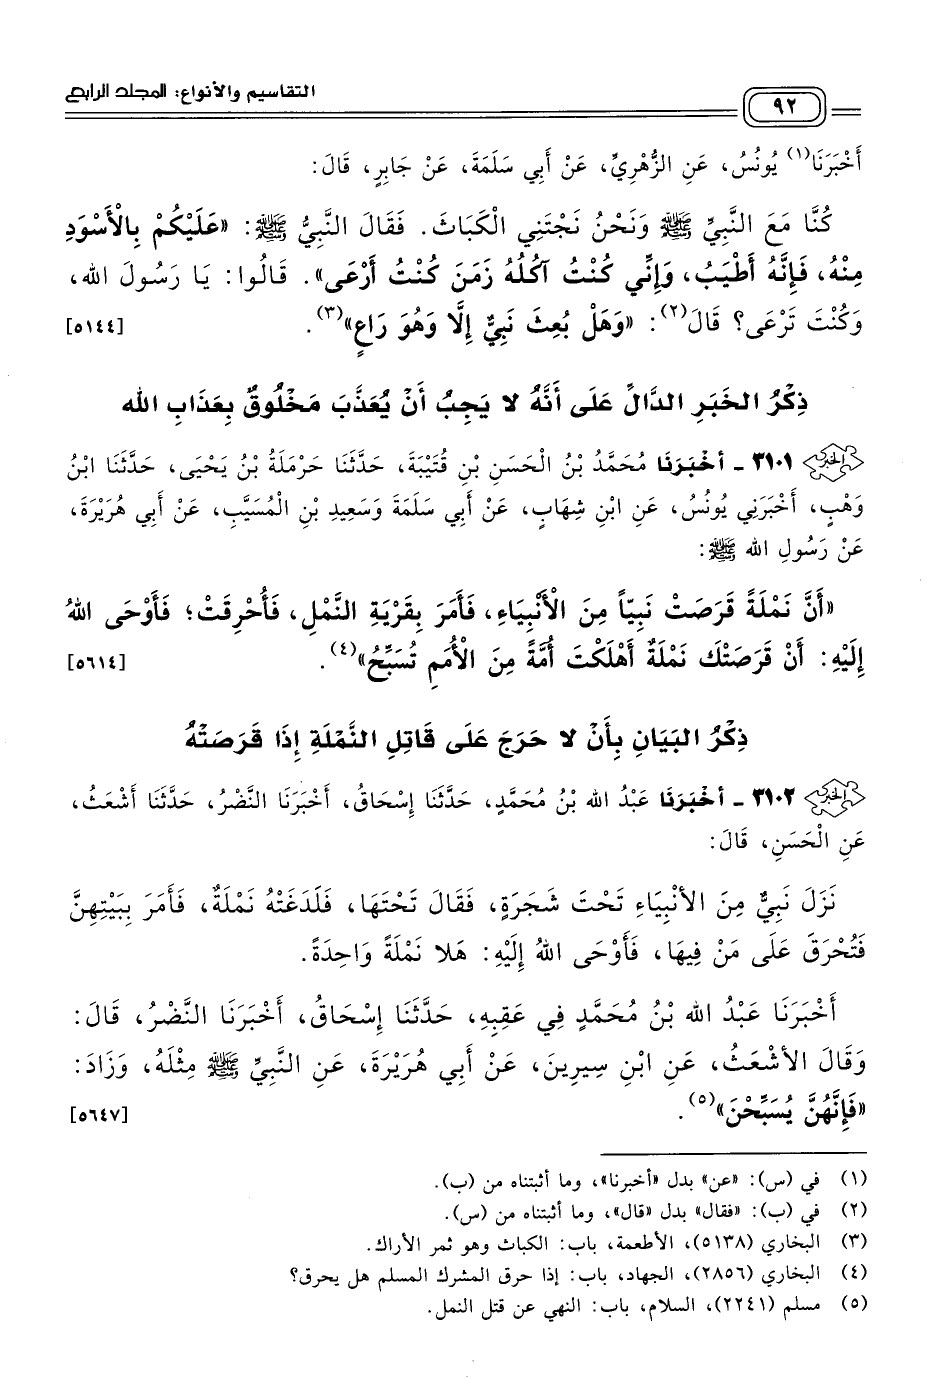 ٩٢
التقاسيم والأنواع: المجلد الرابع
أَخْبَرَنَا(١) يُونُسُ، عَنِ الزُّهْرِيِّ، عَنْ أَبِي سَلَمَةَ، عَنْ جَابِرٍ، قَالَ:
كُنَّا مَعَ النَّبِيِّ ﷺ وَنَحْنُ نَجْتَنِي الْكَبَاثَ. فَقَالَ النَّبِيُّ ﷺ: «عَلَيْكُمْ بِالْأَسْوَدِ
مِنْهُ، فَإِنَّهُ أَطْيَبُ، وَإِنِّي كُنْتُ آكُلُهُ زَمَنَ كُنْتُ أَرْعَى». قَالُوا: يَا رَسُولَ الله،
وَكُنْتَ تَرْعَى؟ قَالَ(٢): «وَهَلْ بُعِثَ نَبِيٌّ إِلَّا وَهُوَ رَاعٍ»(٣). [٥١٤٤]
ذِكْرُ الخَبَرِ الدَّالِّ عَلَى أَنَّهُ لا يَجِبُ أَنْ يُعَذَّبَ مَخْلُوقٌ بِعَذَابِ الله
٣١٠١ - أَخْبَرَنَا مُحَمَّدُ بْنُ الْحَسَنِ بْنِ قُتَيْبَةَ، حَدَّثَنَا حَرْمَلَةُ بْنُ يَحْيَى، حَدَّثَنَا ابْنُ
وَهْبٍ، أَخْبَرَنِي يُونُسُ، عَنِ ابْنِ شِهَابٍ، عَنْ أَبِي سَلَمَةَ وَسَعِيدِ بْنِ الْمُسَيَّبِ، عَنْ أَبِي هُرَيْرَةَ،
عَنْ رَسُولِ الله ﷺ:
«أَنَّ نَمْلَةً قَرَصَتْ نَبِيّاً مِنَ الْأَنْبِيَاءِ، فَأَمَرَ بِقَرْيَةِ النَّمْلِ، فَأُحْرِقَتْ؛ فَأَوْحَى اللهُ
إِلَيْهِ: أَنْ قَرَصَتْكَ نَمْلَةٌ أَهْلَكْتَ أُمَّةً مِنَ الْأُمَمِ تُسَبِّحُ»(٤). [٥٦١٤]
ذِكْرُ البَيَانِ بِأَنْ لا حَرَجَ عَلَى قَاتِلِ النَّمْلَةِ إِذَا قَرَصَتْهُ
٣١٠٢ - أَخْبَرَنَا عَبْدُ الله بْنُ مُحَمَّدٍ، حَدَّثَنَا إِسْحَاقُ، أَخْبَرَنَا النَّضْرُ، حَدَّثَنَا أَشْعَثُ،
عَنِ الْحَسَنِ، قَالَ:
نَزَلَ نَبِيٌّ مِنَ الأَنْبِيَاءِ تَحْتَ شَجَرَةٍ، فَقَالَ تَحْتَهَا، فَلَدَغَتْهُ نَمْلَةٌ، فَأَمَرَ بِبَيْتِهِنَّ
فَتُحْرَقَ عَلَى مَنْ فِيهَا، فَأَوْحَى اللهُ إِلَيْهِ: هَلا نَمْلَةً وَاحِدَةً.
أَخْبَرَنَا عَبْدُ الله بْنُ مُحَمَّدٍ فِي عَقِبِهِ، حَدَّثَنَا إِسْحَاقُ، أَخْبَرَنَا النَّضْرُ، قَالَ:
وَقَالَ الأَشْعَثُ، عَنِ ابْنِ سِيرِينَ، عَنْ أَبِي هُرَيْرَةَ، عَنِ النَّبِيِّ ﷺ مِثْلَهُ، وَزَادَ:
«فَإِنَّهُنَّ يُسَبِّحْنَ»(٥). [٥٦٤٧]
(١) في (س): «عن» بدل «أخبرنا»، وما أثبتناه من (ب).
(٢) في (ب): «فقال» بدل «قال»، وما أثبتناه من (س).
(٣) البخاري (٥١٣٨)، الأطعمة، باب: الكباث وهو ثمر الأراك.
(٤) البخاري (٢٨٥٦)، الجهاد، باب: إذا حرق المشرك المسلم هل يحرق؟
(٥) مسلم (٢٢٤١)، السلام، باب: النهي عن قتل النمل.